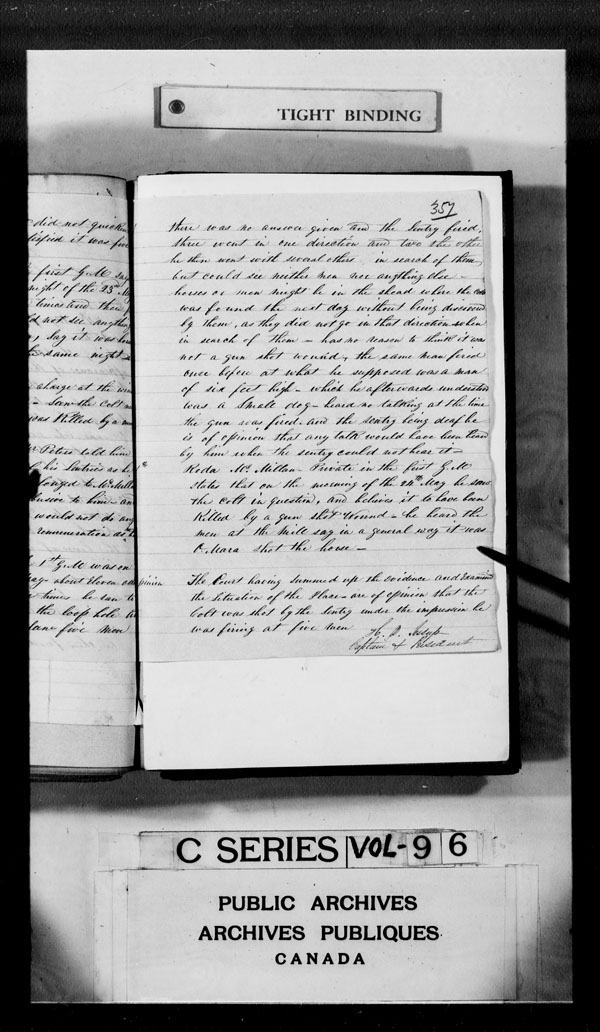 TIGHT BINDING
357
there was no answer given and the Sentry fired,
three went in one direction and two the other
he then went with several others in search of them
but could see neither men nor anything else
horses or men might be in the shead where the Colt
was found the next day without being discovered
by them, as they did not go in that direction when
in search of them – has no reason to think it was
not a gun shot wound, the same man fired
once before at what he supposed was a man
of six feet high – which he afterwards understood
was a Small dog – heard no talking at the time
the gun was fired, and the sentry being deaf he
is of opinion that any talk would have been heard
by him when the sentry could not hear it –
McMillan Private in the first G.M
states that on the morning of the 24th May he saw
the Colt in question, and believes it to have been
Killed by a gun shot Wound – he heard the
men at the Mill say in a general way it was
O'Mara shot the horse –
opinion The Court having summed up the evidence and Examined
the Situation of the Place – are of opinion that the
Colt was shot by the Sentry under the impression he
was firing at five men
Captain & President
did not
it was five
first G.M
night of the 23rd
times and then
not see anything
Say it was
same night
a large at the
Saw the Colt
was Killed by a
Peters told him
his Sentries
belonged to McMillan
to him – and
would not do any
1st G.M was on
about Eleven
times he ran to
the loop hole
five men
C SERIES VOL-96
PUBLIC ARCHIVES
ARCHIVES PUBLIQUES
CANADA